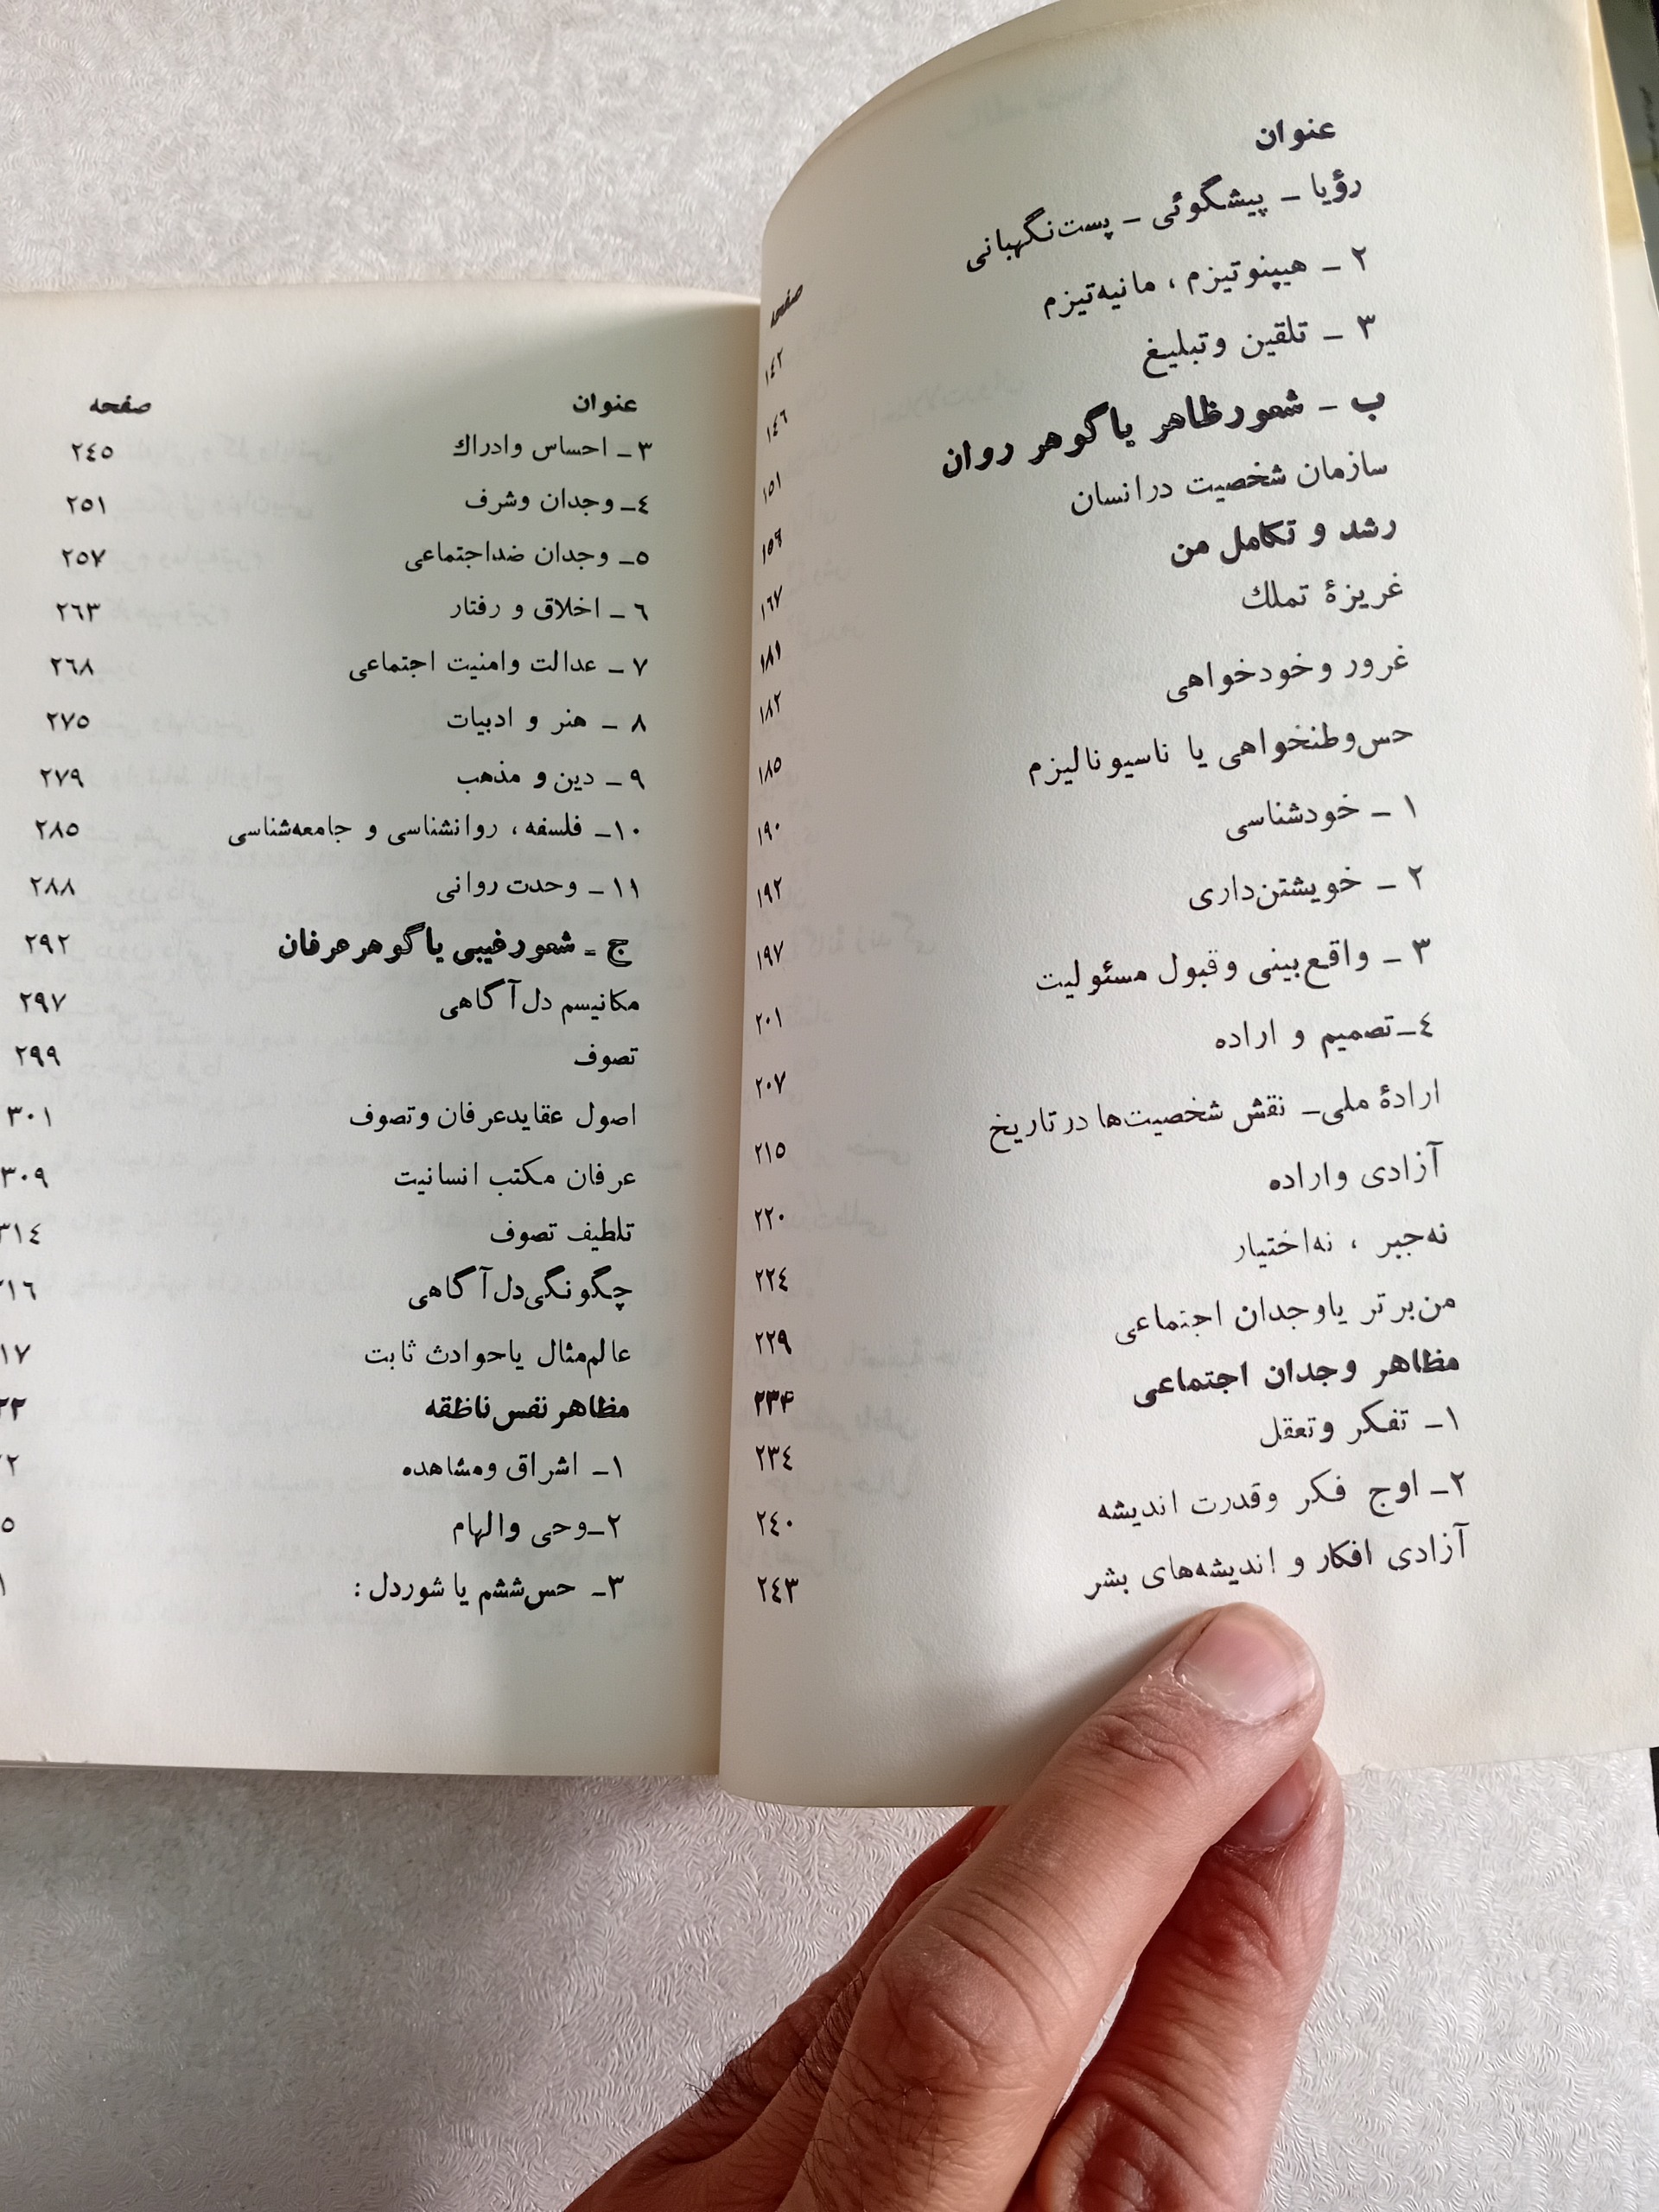 عنوان صفحه
رؤیا ـ پیشگوئی ـ پست‌نگهبانی ۱٤۲
۲ ـ هیپنوتیزم ، مانیه‌تیزم ۱٤٦
۳ ـ تلقین وتبلیغ ۱٥۱
ب ـ شعورظاهر یاگوهر روان ۱٥٦
سازمان شخصیت درانسان ۱٦۷
رشد و تکامل من ۱۸۱
غریزهٔ تملك ۱۸۲
غرور وخودخواهی ۱۸٥
حس‌وطنخواهی یا ناسیونالیزم ۱۹۰
۱ ـ خودشناسی ۱۹۲
۲ ـ خویشتن‌داری ۱۹۷
۳ ـ واقع‌بینی وقبول مسئولیت ۲۰۱
٤ـتصمیم و اراده ۲۰۷
ارادهٔ ملی‌ـ نقش شخصیت‌ها درتاریخ ۲۱٥
آزادی واراده ۲۲۰
نه‌جبر ، نه‌اختیار ۲۲٤
من‌برتر یاوجدان اجتماعی ۲۲۹
مظاهر وجدان اجتماعی ۲۳۴
۱ـ تفکر وتعقل ۲۳٤
۲ـ اوج فکر وقدرت اندیشه ۲٤۰
آزادی افکار و اندیشه‌های بشر ۲٤۳
عنوان صفحه
۳ـ احساس وادراك ۲٤٥
٤ـ وجدان وشرف ۲٥۱
٥ـ وجدان ضداجتماعی ۲٥۷
٦ ـ اخلاق و رفتار ۲٦۳
۷ ـ عدالت وامنیت اجتماعی ۲٦۸
۸ ـ هنر و ادبیات ۲۷٥
۹ ـ دین و مذهب ۲۷۹
۱۰ـ فلسفه ، روانشناسی و جامعه‌شناسی ۲۸٥
۱۱ ـ وحدت روانی ۲۸۸
ج ـ شعورغیبی یاگوهرعرفان ۲۹۲
مکانیسم دل‌آگاهی ۲۹۷
تصوف ۲۹۹
اصول عقایدعرفان وتصوف ۳۰۱
عرفان مکتب انسانیت ۳۰۹
تلطیف تصوف ۳۱٤
چگونگی‌دل‌آگاهی ۱٦
عالم‌مثال یاحوادث ثابت ۱۷
مظاهرنفس‌ناطقه ۲۲
۱ـ اشراق ومشاهده ۲
۲ـوحی والهام ٥
۳ـ حس‌ششم یا شوردل : ۱